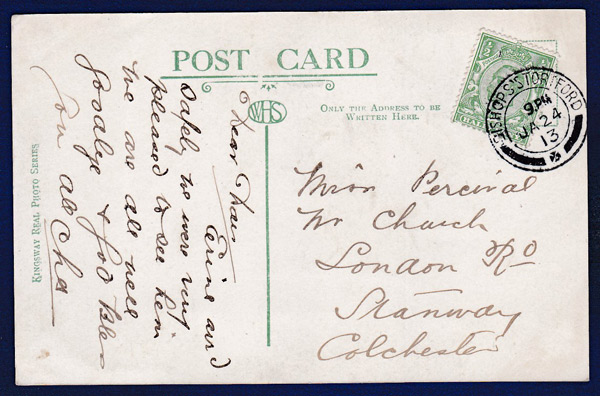 POST CARD
WHS
ONLY THE ADDRESS TO BE
WRITTEN HERE.
KINGSWAY REAL PHOTO SERIES
½ ½
BISHOPS STORTFORD
9 PM
JA 24
13
Dear
Ernie arrd
safely, we were very
pleased to see him
We are all well
Goodbye & God bless
you all
Miss Percival
Nr Church
London Rd
Stanway
Colchester